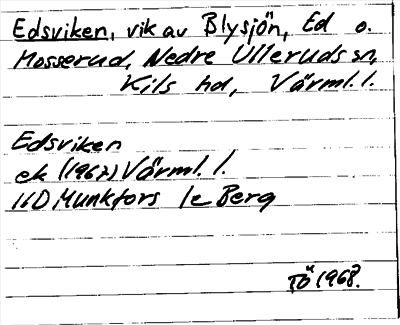 Edsviken, vik av Blysjön, Ed o.
Mosserud, Nedre Ulleruds sn,
Kils hd, Värml. l.
Edsviken
ek (1967) Värml. l.
11D Munkfors 1e Berg
TÖ 1968.